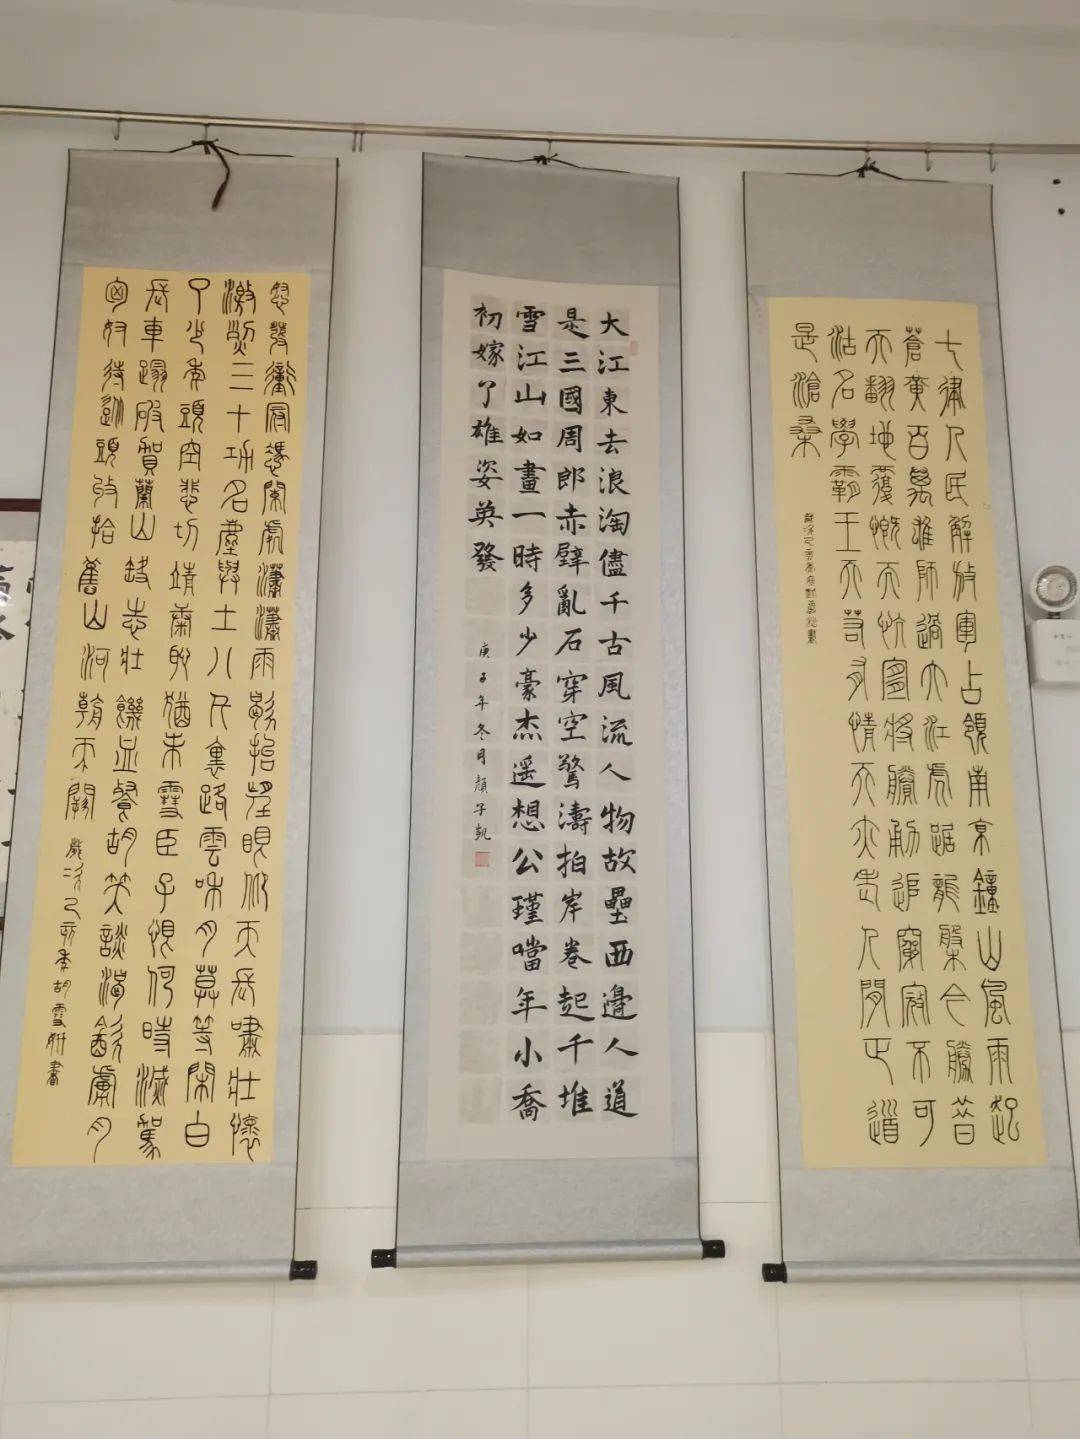 七律人民解放軍占領南京鐘山風雨起
蒼黃百萬雄師過大江虎踞龍盤今勝昔
天翻地覆慨而慷宜將勝勇追窮寇不可
沽名學霸王天若有情天亦老人間正道
是滄桑
大江東去浪淘儘千古風流人物故壘西邊人道
是三國周郎赤壁亂石穿空驚濤拍岸卷起千堆
雪江山如畫一時多少豪杰遥想公瑾噹年小喬
初嫁了雄姿英發
庚子年冬月顏子凱
怒發衝冠憑闌處瀟瀟雨歇抬望眼仰天長嘯壯懷
激烈三十功名塵與土八千里路雲和月莫等閑白
了少年頭空悲切靖康恥猶未雪臣子恨何時滅駕
長車蹋破賀蘭山缺志壯饑餐胡笑談渴飲虜肉
匈奴待從頭收拾舊山河朝天闕
歲次己亥年胡雪妍書